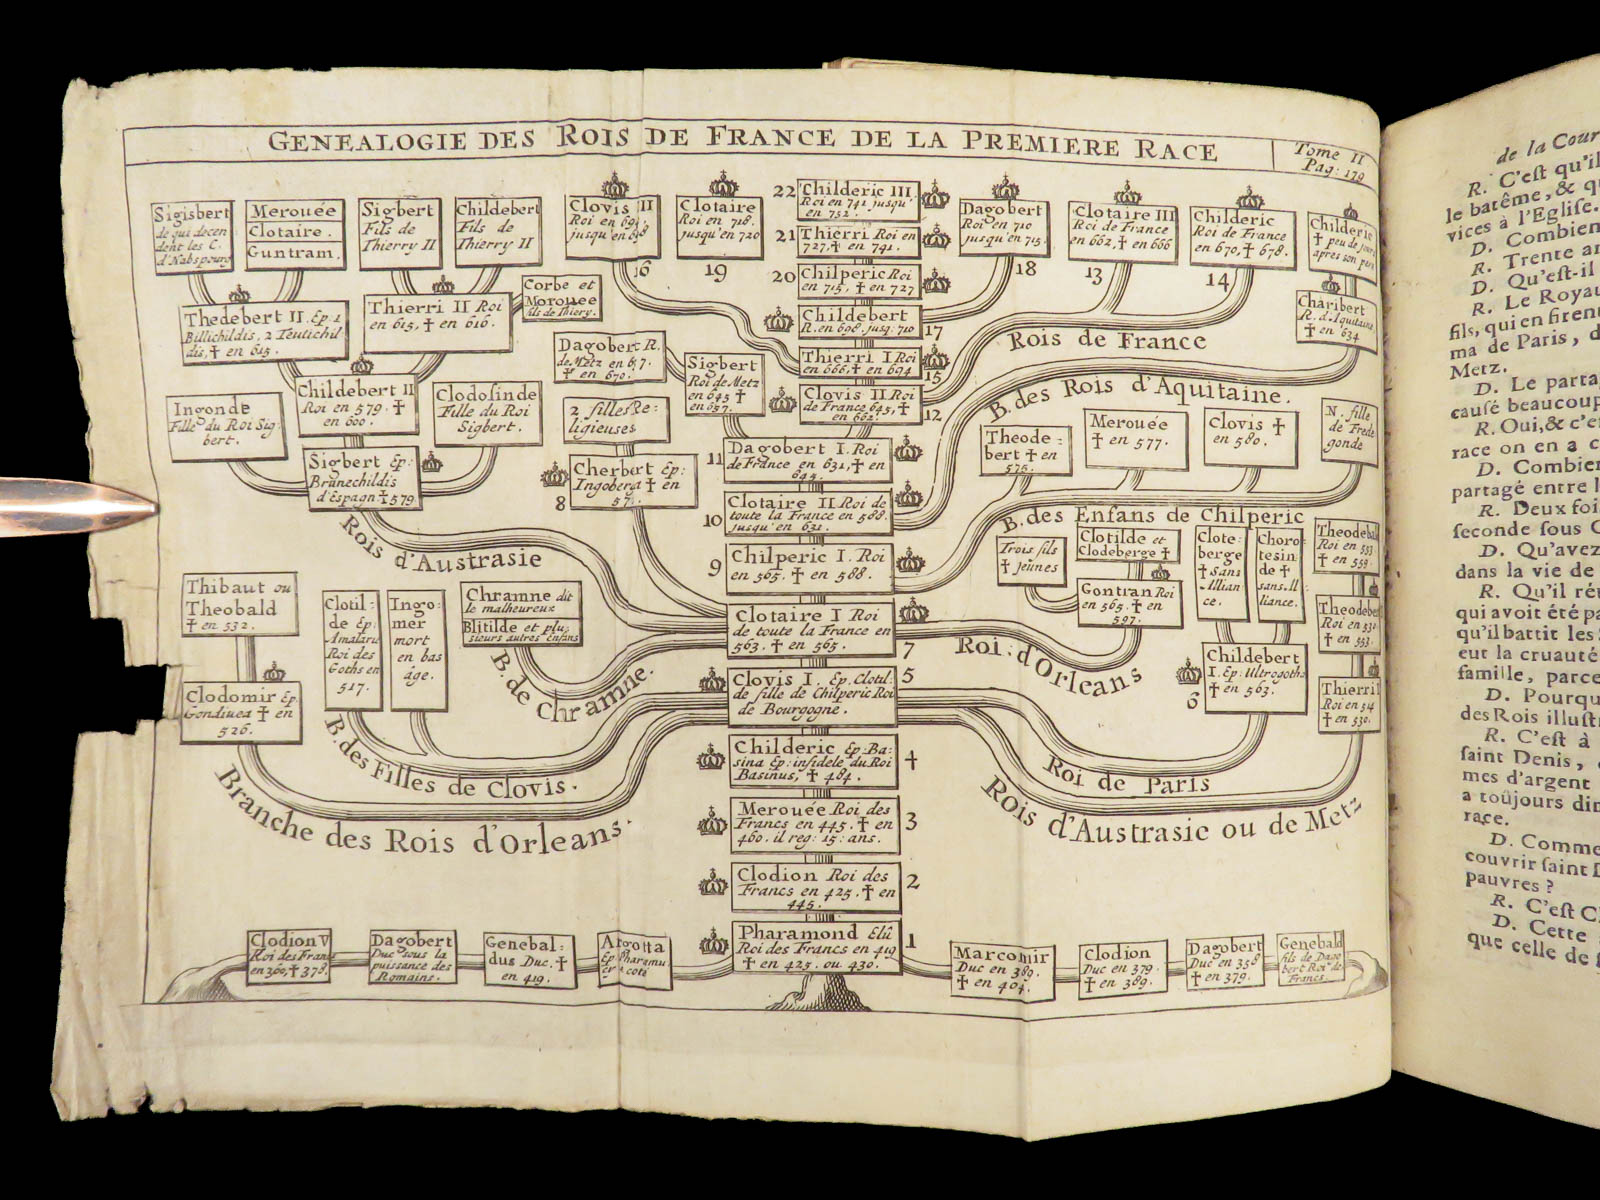 GENEALOGIE DES ROIS DE FRANCE DE LA PREMIERE RACE
Tome II
Pag: 179
Sigisbert
de qui decen
dent les C.
d'Habspourg
Merouée
Clotaire.
Guntram.
Sigbert
Fils de
Thierry II
Childebert
Fils de
Thierry II
Clovis II
Roi en 694,
jusqu'en 698
16
Clotaire
Roi en 718.
jusqu'en 720
19
22 Childeric III
Roi en 741 jusqu'
en 752.
21 Thierri Roi en
727, † en 741.
20 Chilperic Roi
en 715, † en 727
Childebert
R. en 698. jusq: 710
17
Thierri I Roi
en 666, † en 694
15
Clovis II Roi
de France 645, †
en 662.
12
Dagobert
Roi en 710
jusqu'en 715.
18
Clotaire III
Roi de France
en 662, † en 666
13
Childeric
Roi de France
en 670, † 678.
14
Childeric
† peu de jours
apres son pere
Charibert
R. d'Aquitaine,
† en 634
Thedebert II. Ep. 1
Billichildis, 2 Teutichil
dis, † en 615.
Thierri II Roi
en 615, † en 616.
Corbe et
Morouee
fils de Thiery.
Dagobert R.
de Metz en 657.
† en 670.
Sigbert
Roi de Metz
en 645 †
en 657.
Rois de France
B. des Rois d'Aquitaine.
Ingonde
Fille du Roi Sig
bert.
Childebert II
Roi en 579. †
en 600.
Clodosinde
Fille du Roi
Sigbert.
2 filles Re:
ligieuses
Sigbert Ep:
Brunechildis
d'Espagn † 579.
Cherbert Ep:
Ingoberga † en
57
8
11 Dagobert I. Roi
de France en 631, † en
645.
10 Clotaire II Roi de
toute la France en 588.
jusqu'en 631.
9 Chilperic I. Roi
en 565. † en 588.
Theode:
bert † en
576.
Merouée
† en 577.
Clovis †
en 580.
N. fille
de Frede
gonde
B. des Enfans de Chilperic
Rois d'Austrasie
Trois fils
† jeunes
Clotilde et
Clodeberge †
Gontran Roi
en 565. † en
597.
Clote:
berge
† Sans
Allian
ce.
Choro
tesin
de †
sans Al
liance.
Theodebald
Roi en 553
† en 559.
Theodebert
Roi en 530
† en 553.
Thierri
Roi en 514
† en 530.
Thibaut ou
Theobald
† en 532.
Clotil:
de Ep.
Amalaric
Roi des
Goths en
517.
Ingo:
mer
mort
en bas
âge.
Chramne dit
le malheureux
Blitilde et plu,
sieurs autres enfans
Clotaire I Roi
de toute la France en
563. † en 565.
7
Roi: d'Orleans
Childebert
I. Ep: Ultrogothe
† en 563.
6
Clodomir Ep.
Gondiuca † en
526.
B. de Chramne.
Clovis I. Ep. Clotil:
de fille de Chilperic Roi
de Bourgogne.
5
B. des Filles de Clovis.
Roi de Paris
Branche des Rois d'Orleans.
Rois d'Austrasie ou de Metz
Childeric Ep: Ba:
sina Ep: infidele du Roi
Basinus, † 484.
4
Merouée Roi des
Francs en 445. † en
460. il reg: 15: ans.
3
Clodion Roi des
Francs en 425. † en
445.
2
Pharamond Elû
Roi des Francs en 419
† en 425. ou 430.
1
Clodion V
Roi des Fran
en 360, † 378.
Dagobert
Duc sous la
puissance des
Romains.
Genebal:
dus Duc. †
en 419.
Argotta
Ep Pharamu
Marcomir
Duc en 389.
† en 404.
Clodion
Duc en 379.
† en 389.
Dagobert
Duc en 358
† en 379.
Genebald
fils de Dago
bert Roi de
Francs.
de la Cour
R. C'est qu'il
le batême, & q
vices à l'Eglise.
D. Combien
R. Trente an
D. Qu'est-il
R. Le Royau
fils, qui en firent
ma de Paris, d
Metz.
D. Le parta
causé beaucoup
R. Oui, & c'e
race on en a c
D. Combien
partagé entre l
R. Deux foi
seconde sous C
D. Qu'avez
dans la vie de
R. Qu'il ré
qui avoit été pa
qu'il battit les
eut la cruauté
famille, parce
D. Pourqu
des Rois illust
R. C'est à
saint Denis,
mes d'argent
a toûjours di
race.
D. Comme
couvrir saint D
pauvres?
R. C'est C
D. Cette
que celle de